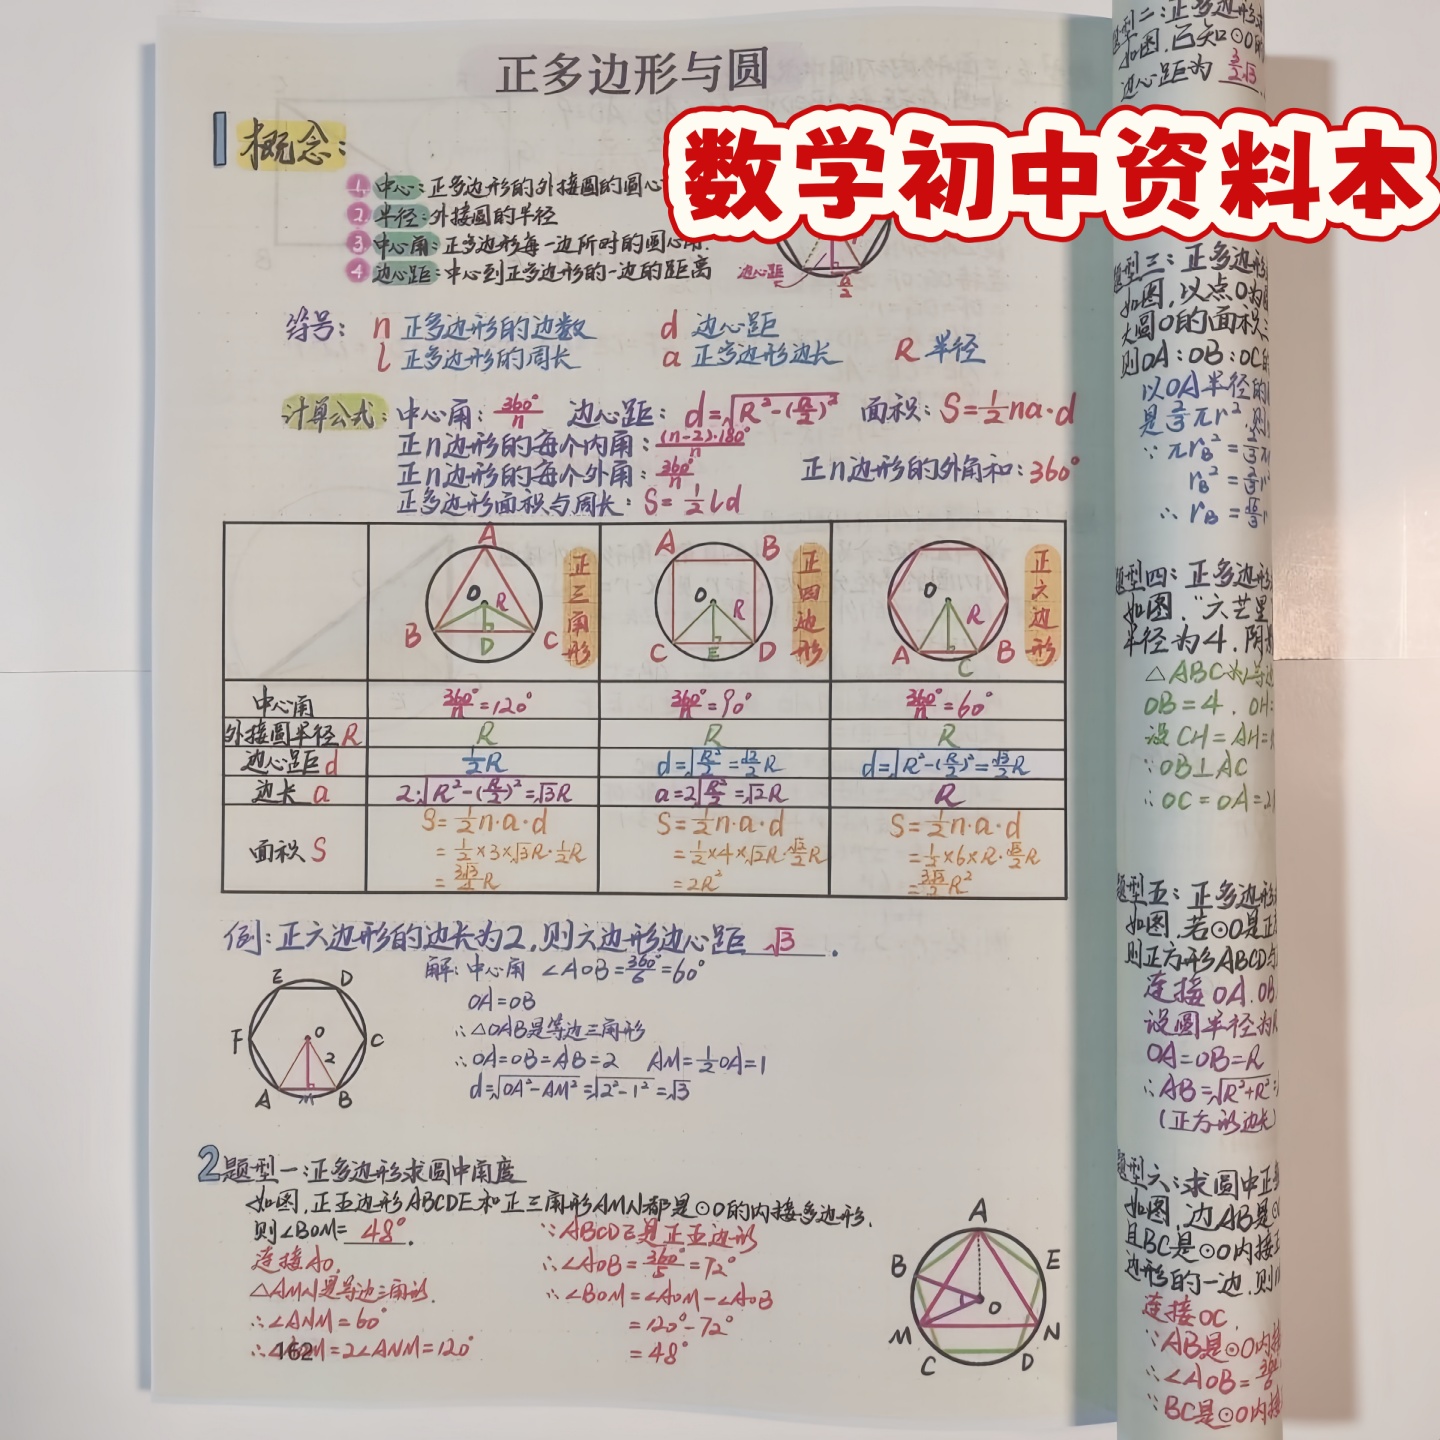 正多边形与圆
数学初中资料本
1 概念:
1. 中心:正多边形的外接圆的圆心
2. 半径:外接圆的半径
3. 中心角:正多边形每一边所对的圆心角.
4. 边心距:中心到正多边形的一边的距离
边心距 a/2
符号: n 正多边形的边数 d 边心距
l 正多边形的周长 a 正多边形边长 R 半径
计算公式:中心角: 360°/n 边心距: d=√(R²-(R/2)²) 面积: S=1/2na·d
正n边形的每个内角: (n-2)·180°/n
正n边形的每个外角: 360°/n 正n边形的外角和: 360°
正多边形面积与周长: S=1/2ld
A O R B D C 正三角形
A B O R C E D 正四边形
O R A C B 正六边形
中心角 360°/n=120° 360°/n=90° 360°/n=60°
外接圆半径R R R R
边心距d 1/2R d=√(R²/2)=√2/2R d=√(R²-(R/2)²)=√3/2R
边长a 2·√(R²-(R/2)²)=√3R a=2√(R²/2)=√2R R
面积S S=1/2n·a·d S=1/2n·a·d S=1/2n·a·d
=1/2×3×√3R·1/2R =1/2×4×√2R·√2/2R =1/2×6×R·√3/2R
=3√3/4R =2R² =3√3/2R²
例:正六边形的边长为2,则六边形边心距 √3 .
解:中心角 ∠AOB=360°/6=60°
OA=OB
∴△OAB是等边三角形
∴OA=OB=AB=2 AM=1/2OA=1
d=√(OA²-AM²)=√(2²-1²)=√3
E D F O C 2 A M B
2 题型一:正多边形求圆中角度
如图,正五边形ABCDE和正三角形AMN都是⊙O的内接多边形,
则∠BOM= 48° .
连接AO,
△AMN是等边三角形.
∴∠ANM=60°
∴∠AOM=2∠ANM=120°
∵ABCDE是正五边形
∴∠AOB=360°/5=72°
∴∠BOM=∠AOM-∠AOB
=120°-72°
=48°
A B E O M N C D
162
题型二:正多边形求
如图,已知⊙O的
边心距为 3/2√3
题型三:正多边形
如图,以点O为圆
大圆O的面积三
则OA:OB:OC的
以OA半径的
是1/3πr²,则
∵πrB²=2/3π
rB²=2/3r
∴rB=√6/3r
题型四:正多边形
如图,"六艺里
半径为4,阴
△ABC为等边
OB=4,OH=
设CH=AH=
∵OB⊥AC
∴OC=OA=2
题型五:正多边形
如图,若⊙O是正
则正方形ABCD与
连接OA,OB
设圆半径为R
OA=OB=R
∴AB=√(R²+R²)=
(正方形边长)
题型六:求圆中正多
如图,边AB是⊙
且BC是⊙O内接正
边形的一边,则
连接OC,
∵AB是⊙O内接
∴∠AOB=360°/6
∵BC是⊙O内接